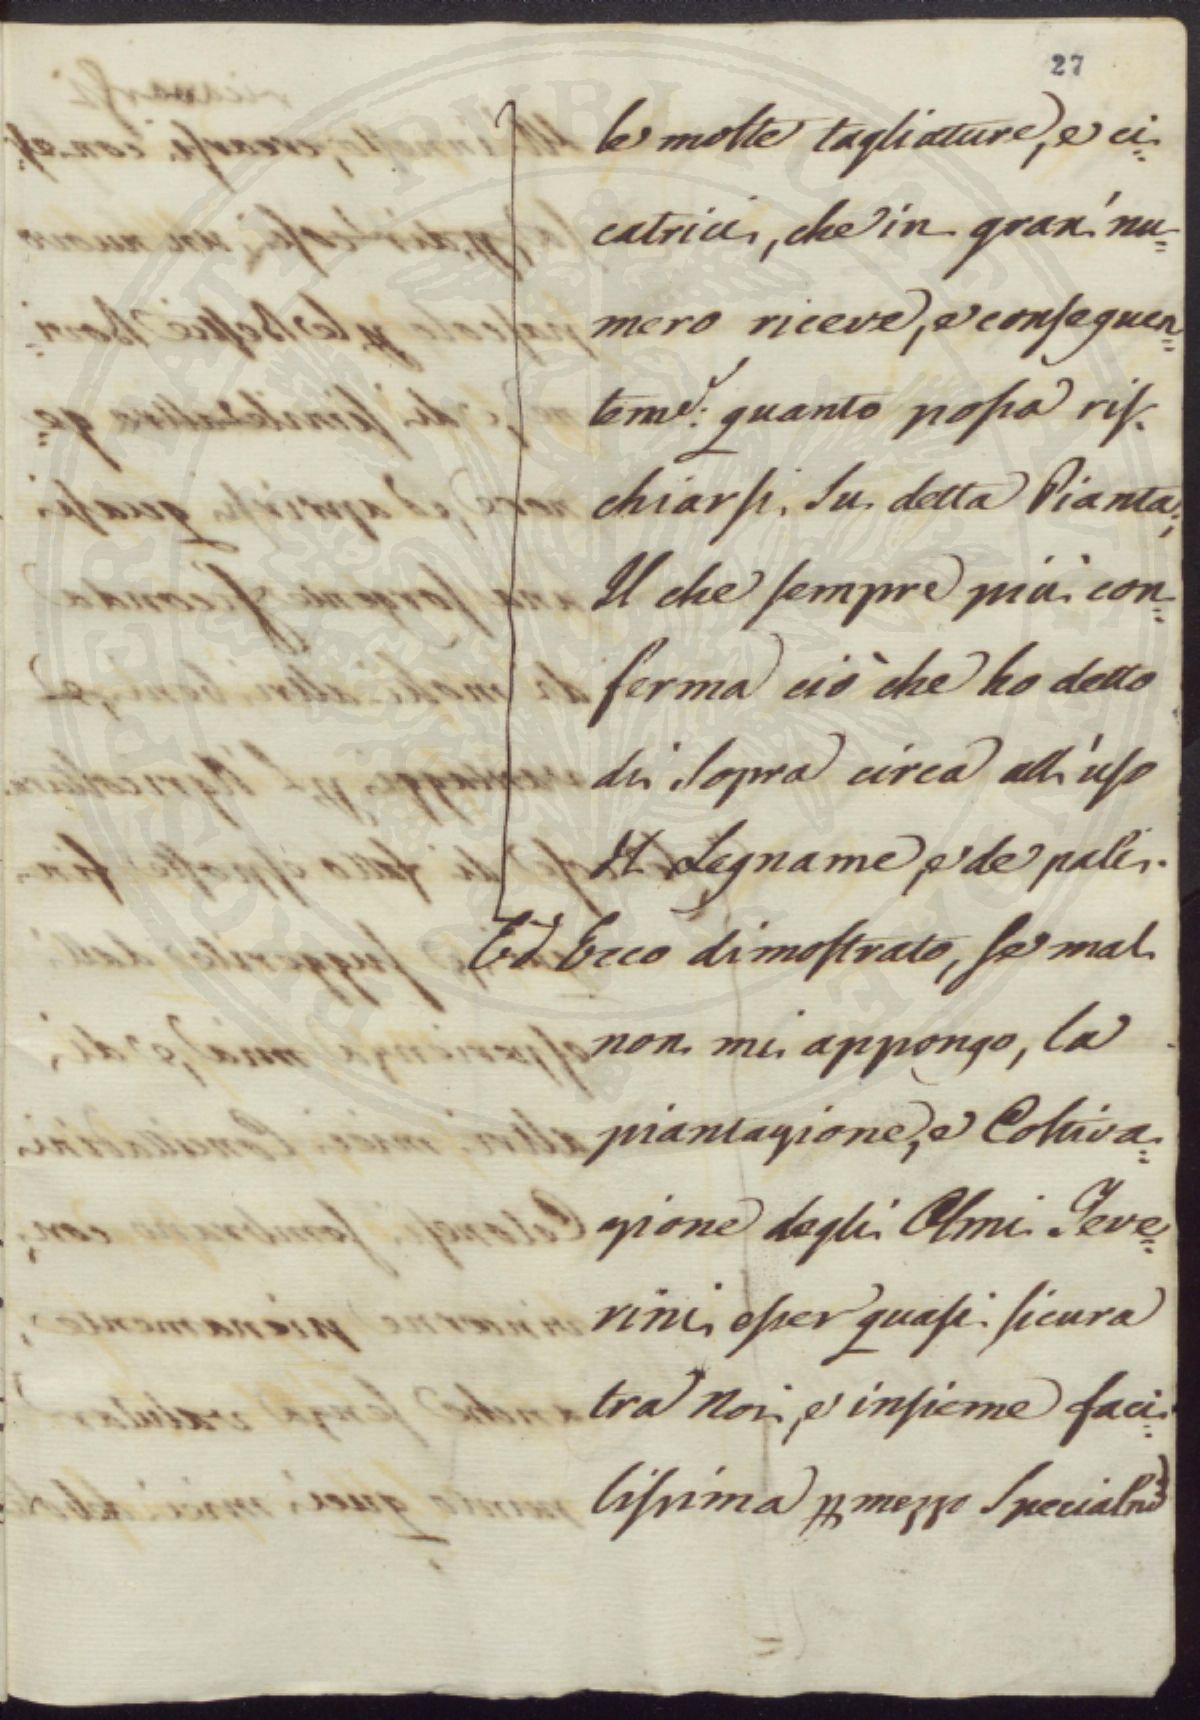 27
le molte tagliature, e ci=
catrici, che in gran' nu=
mero riceve, e conseguen=
tem.e: quanto possa ris=
chiarsi su detta Pianta;
Il che sempre più con=
ferma ciò che ho detto
di sopra circa all'uso
del Legname, e de pali.
Ed Ecco dimostrato, se mal
non mi appongo, la
piantagione, e Coltiva=
zione degli Olmi Teve=
rini esser quasi sicura
tra Noi, e insieme faci=
lissima p mezzo specialm.e